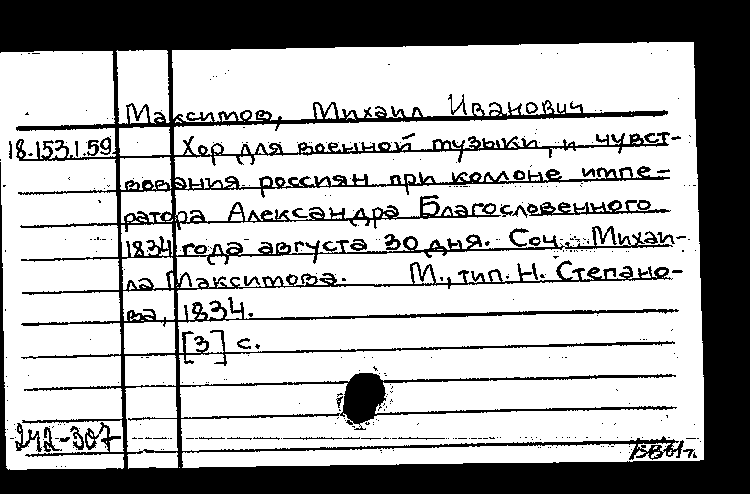 Максимов, Михаил Иванович
18.153.1.59. Хор для военной музыки, и чувст-
вования россиян при коллоне импе-
ратора Александра Благословенного
1834 года августа 30 дня. Соч. Михаи-
ла Максимова. М., тип. Н. Степано-
ва, 1834.
[3] с.
242-307